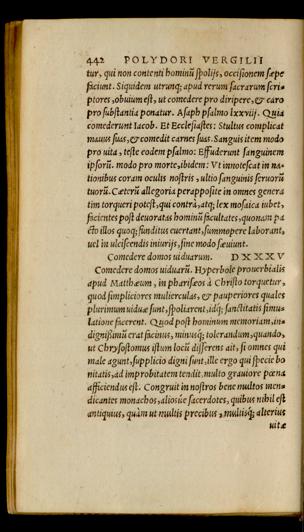 442 POLYDORI VERGILII
tur, qui non contenti hominũ spolijs, occisionem sæpe
faciunt. Siquidem utrunq; apud rerum sacrarum scri-
ptores, obuium est, ut comedere pro diripere, & caro
pro substantia ponatur. Asaph psalmo lxxviij. Quia
comederunt Iacob. Et Ecclesiastes: Stultus complicat
manus suas, & comedit carnes suas. Sanguis item modo
pro uita, teste eodem psalmo: Effuderunt sanguinem
ipsorũ. modo pro morte, ibidem: Vt innotescat in na-
tionibus coram oculis nostris, ultio sanguinis seruorũ
tuorũ. Cæterũ allegoria perapposite in omnes genera
tim torqueri potest, qui contrà, atq; lex mosaica iubet,
facientes post deuoratas hominũ facultates, quonam pa
cto illos quoq; funditus euertant, summopere laborant,
uel in ulciscendis iniurijs, sine modo sæuiunt.
Comedere domos uiduarum. DXXXV
Comedere domos uiduarũ. Hyperbole prouerbialis
apud Matthæum, in pharisæos à Christo torquetur,
quòd simpliciores mulierculas, & pauperiores quales
plurimum uiduæ sunt, spoliarent, idq; sanctitatis simu-
latione facerent. Quod post hominum memoriam, in-
dignißimũ erat facinus, minusq; tolerandum, quando,
ut Chrysostomus istum locũ disserens ait, si omnes qui
male agunt, supplicio digni sunt, ille ergo qui specie bo
nitatis, ad improbitatem tendit, multo grauiore pœna
afficiendus est. Congruit in nostros bene multos men-
dicantes monachos, aliosúe sacerdotes, quibus nihil est
antiquius, quàm ut multis precibus, multisq; alterius
uitæ